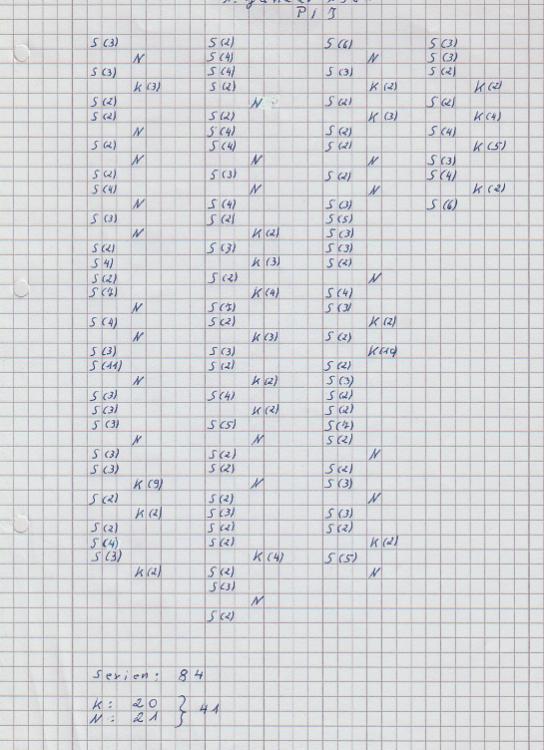 S(3)
N
S(3)
K(3)
S(2)
S(2)
N
S(2)
N
S(2)
S(4)
N
S(3)
N
S(2)
S 4)
S(2)
S(7)
N
S(4)
N
S(3)
S(11)
N
S(3)
S(3)
S(3)
N
S(3)
S(3)
K(9)
S(2)
K(2)
S(2)
S(4)
S(3)
K(2)
S(2)
S(4)
S(4)
S(2)
N
S(2)
S(4)
S(4)
N
S(3)
N
S(4)
S(2)
K(2)
S(3)
K(3)
S(2)
K(4)
S(7)
S(2)
K(3)
S(3)
S(2)
K(2)
S(4)
K(2)
S(5)
N
S(2)
S(2)
N
S(2)
S(3)
S(2)
S(2)
K(4)
S(2)
S(3)
N
S(2)
S(6)
N
S(3)
K(2)
S(2)
K(3)
S(2)
S(2)
N
S(2)
N
S(3)
S(5)
S(3)
S(3)
S(2)
N
S(4)
S(3)
K(2)
S(2)
S(2)
S(3)
S(2)
S(2)
S(7)
S(2)
N
S(2)
S(3)
N
S(3)
S(2)
K(2)
S(5)
N
S(3)
S(3)
S(2)
K(2)
S(2)
K(4)
S(4)
K(5)
S(3)
S(4)
K(2)
S(6)
Serien: 84
K: 20
N: 21 } 41